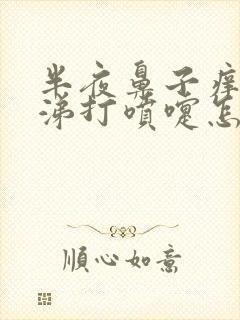 半夜鼻子痒
涕打喷嚏怎
順心如意